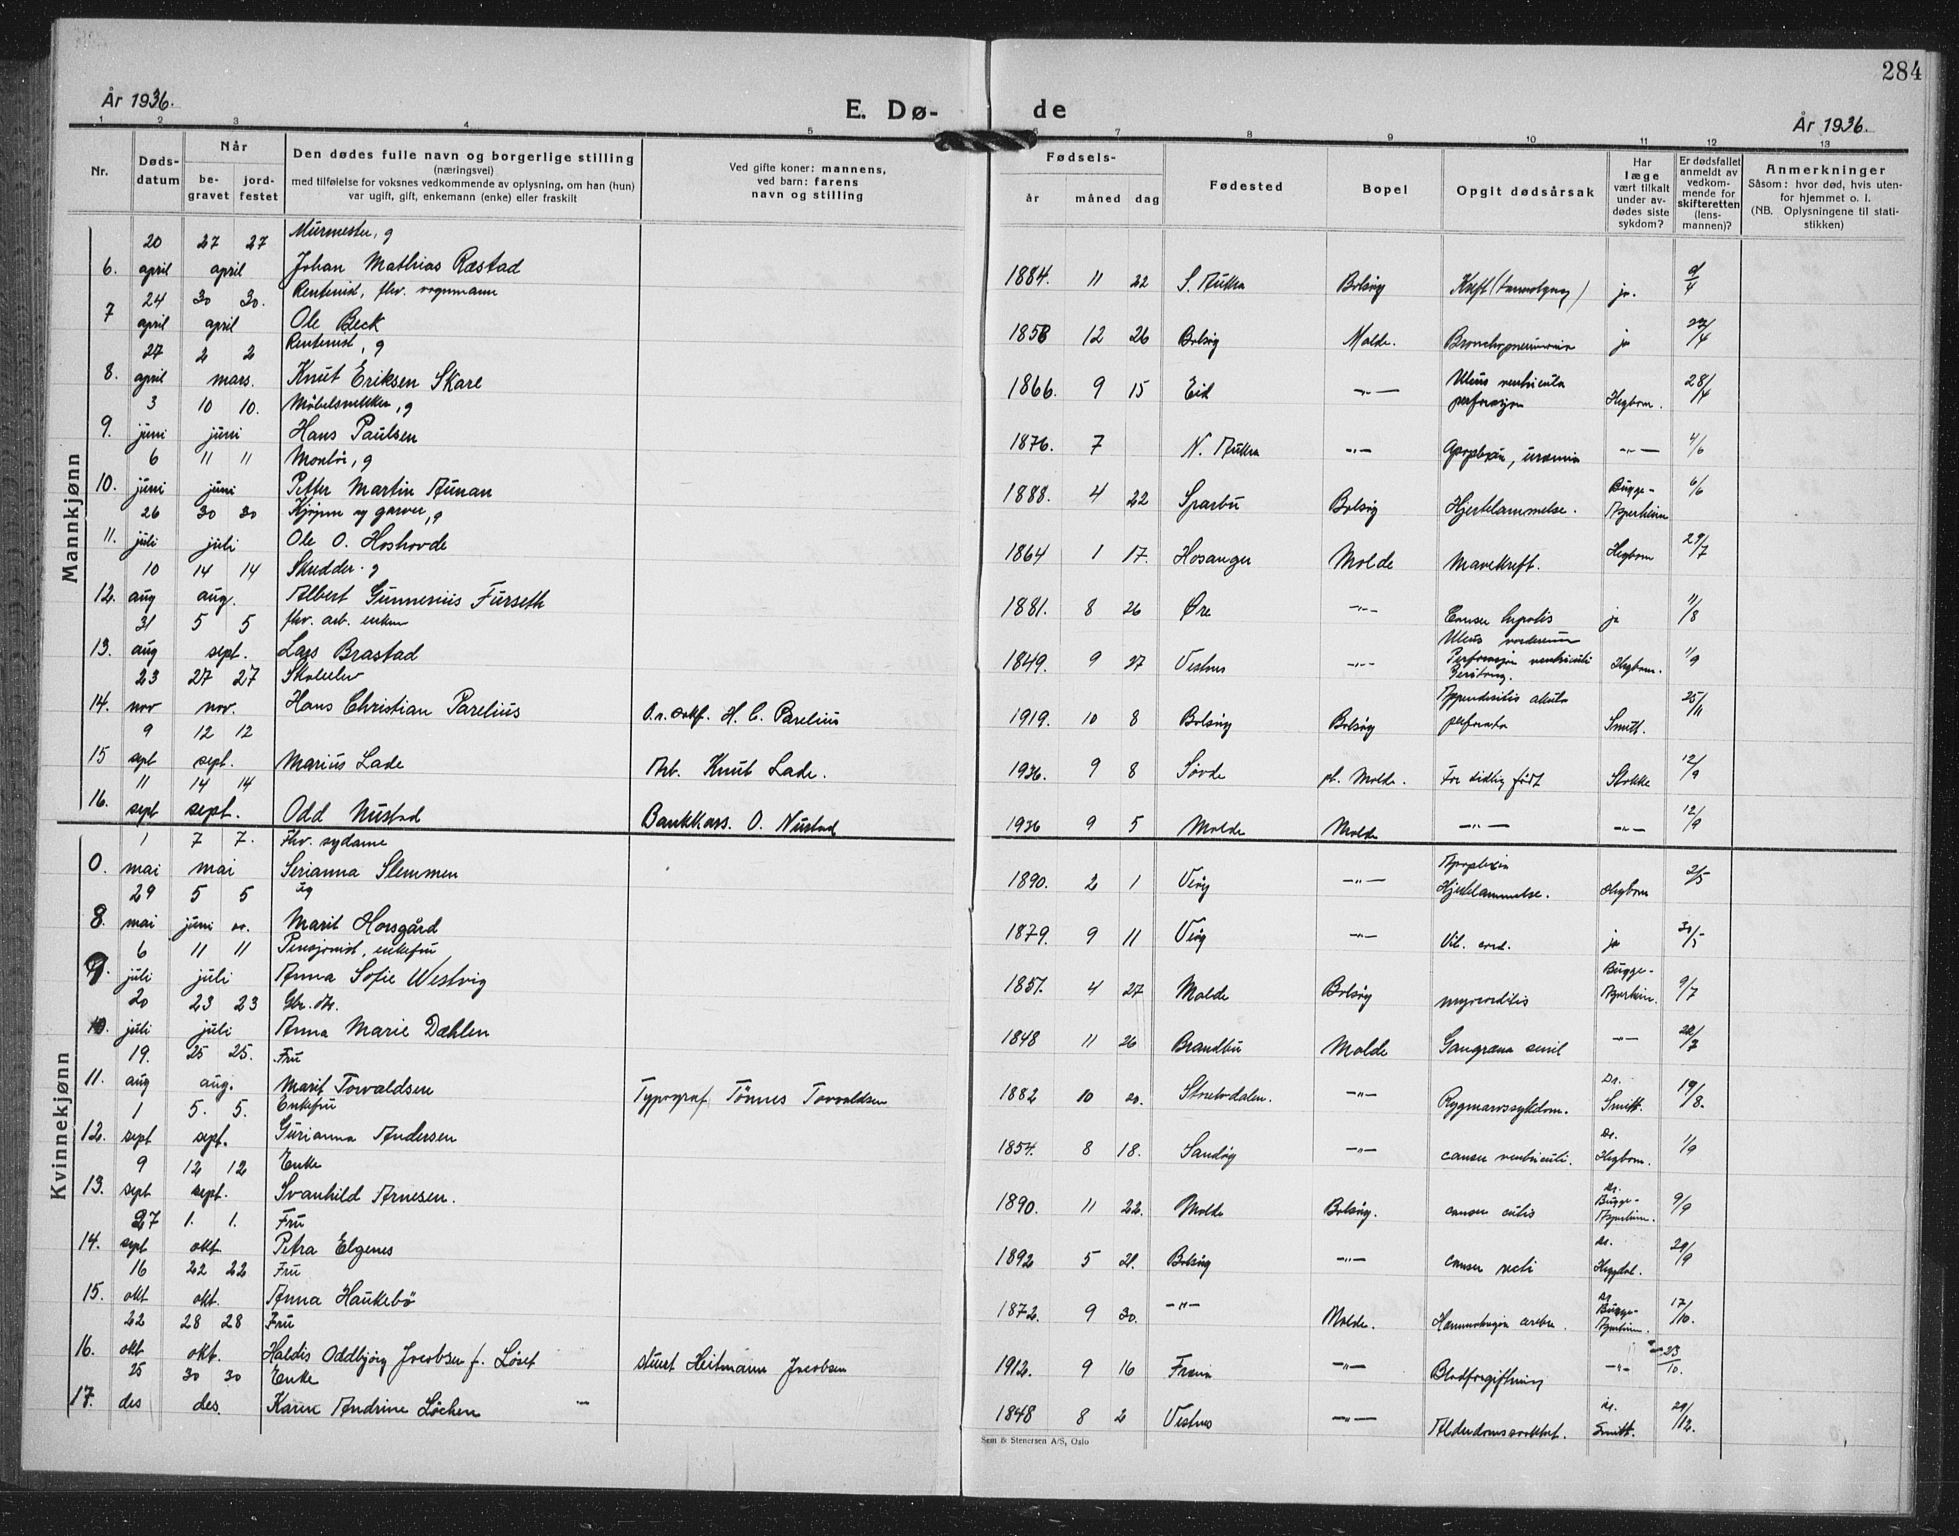 284
År 1936.
E. Dø- de
År 1936.
1 2 3 4 5 6 7 8 9 10 11 12 13
Nr.
Døds-datum
Når
be-gravet
jord-festet
Den dødes fulle navn og borgerlige stilling
(næringsvei)
med tilføielse for voksnes vedkommende av oplysning, om han (hun)
var ugift, gift, enkemann (enke) eller fraskilt
Ved gifte koner: mannens,
ved barn: farens
navn og stilling
Fødsels-
år måned dag
Fødested
Bopel
Opgit dødsårsak
Har
læge
vært tilkalt
under av-
dødes siste
sykdom?
Er dødsfallet
anmeldt av
vedkom-
mende for
skifteretten
(lens-
mannen)?
Anmerkninger
Såsom: hvor død, hvis uten-
for hjemmet o. l.
(NB. Oplysningene til stati-
stikken)
Mannkjønn
20 27 27 Murmester, g
6. april april Johan Mathias Ræstad 1884. 11 22 S. Aukra Bolsøy Kreft ja.
24 30 30. Rentenist, fhv. vognmann
7 april april Ole Beck 1858 12 26 Bolsøy Molde. Bronchopneumonia ja 27/4
27 2 2 Rentenist, g
8. april mars. Knut Eriksen Skare 1866. 9 15 Eid -"- Ulcus ventricula perforasjon Hegbom. 28/4
3 10 10. Møbelsnekker, g
9. juni juni Hans Paulsen 1876. 7 N. Aukra -"- Apoplexia, uræmia -"- 4/6
6 11 11 Montør, g
10. juni juni Petter Martin Aunan 1888. 4 22 Sparbu Bolsøy Hjertelammelse. Bugge-Asperheim 6/6
26 30 30 Kjøpm og garver, g
11. juli juli Ole O. Hoshovde 1864 1 17. Hosanger Molde Mavekreft. Hegbom 29/7
10 14 14 Skredder. g
12. aug aug. Albert Gunnerius Furseth 1881. 8 26 Øre -"- Cancer hepatis ja 11/8
31 5 5 fhv. arb. enkem
13. aug sept. Lars Brastad 1849. 9 27 Vestnes -"- Ulcus Perforasjon ventriculi Hegbom. 1/9
23 27 27 Skoleelev
14. nov nov. Hans Christian Parelius O.r. sakf. H. C. Parelius 1919. 10 8 Bolsøy Bolsøy Appendisitis akuta perforata Smitt. 25/11
9 12 12
15 sept sept. Marius Lade Arb. Knut Lade. 1936. 9 8 Søvde pl. Molde. For tidlig født Stokke 12/9
11 14 14
16. sept sept. Odd Nustad Bankkass. O. Nustad 1936 9 5 Molde Molde -"- -"- 12/9
Kvinnekjønn
1 7 7. Fhv. sydame
0. mai mai Serianna Slemmen 1890. 2 1 Veøy -"- Apoplexia Hjertelammelse. Hegbom 2/5
29 5 5 ug
8. mai juni Marit Horsgård 1879. 9 11 Veøy -"- Vit. cord. ja 30/5
6 11 11 Pensjonist, enkefru
9. juli juli Anna Sofie Westvig 1857. 4 27 Molde Bolsøy myocarditis Bugge-Asperheim. 9/7
20 23 23
10. juli juli Anna Marie Dæhlen 1848 11 26 Brandbu Molde Gangræna senil -"- 20/7
19. 25 25. Fru
11. aug aug. Marit Torvaldsen Typograf Tønnes Torvaldsen 1882 10 20. -"- Rygmarvssykdom. Dr. Smitt. 19/8.
1 5. 5. Enkefru
12. sept sept. Gurianna Andersen 1854. 8 18. Sandøy -"- cancer ventriculi. Dr. Hegbom. 1/9
9 12 12 Enke
13. sept sept. Svanhild Arnesen. 1890. 11 22. Molde Bolsøy. cancer cutis Dr. Bugge-Asperheim. 9/9
27 1. 1. Fru
14. sept okt. Petra Elgenes 1892 5 21. Bolsøy -"- cancer recti Dr. Heggdal. 29/9
16 22 22 Fru
15. okt okt. Anna Haukebø 1872. 9 30. -"- Molde. Hæmorrhagia cerebri. Dr Bugge-Asperheim. 17/10.
22 28 28 Fru
16. okt okt. Haldis Oddbjørg Jacobsen f. Løset stuert Heitmann Jacobsen 1912. 9 16 Fræna -"- Blodforgiftning -"- 23/10.
25 30 30 Enke
17. des des. Karen Andrine Løchen -"- 1848 8 2 Vestnes -"- Alderdomssvakhet. Dr. Smitt. 29/12.
Sem & Stenersen A/S, Oslo